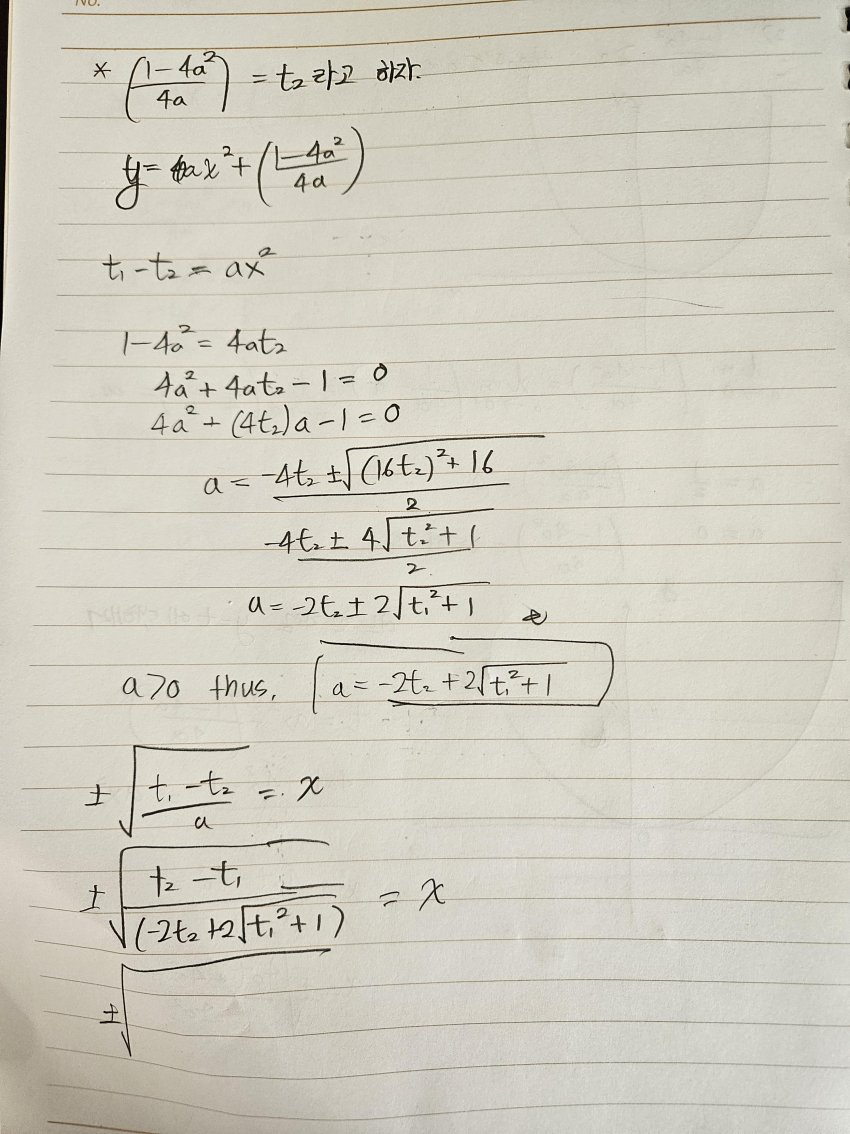 No.
* ((1-4a²)/(4a)) = t₂ 라고 하자.
y = ax² + ((1-4a²)/(4a))
t₁ - t₂ = ax²
1-4a² = 4at₂
4a² + 4at₂ - 1 = 0
4a² + (4t₂)a - 1 = 0
a = (-4t₂ ± √((16t₂)² + 16))/2
(-4t₂ ± 4√(t₂² + 1))/2
a = -2t₂ ± 2√(t₁² + 1)
a>0 thus, a = -2t₂ + 2√(t₁² + 1)
± √((t₁ - t₂)/a) = x
± √((t₂ - t₁)/(-2t₂ + 2√(t₁² + 1))) = x
± √